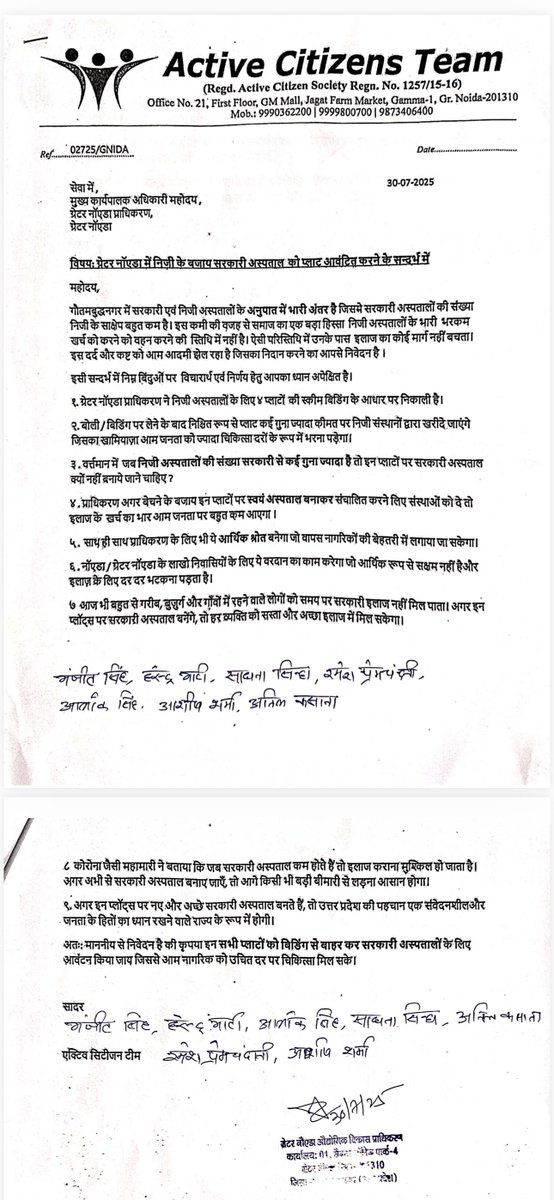 Active Citizens Team
(Regd. Active Citizen Society Regn. No. 1257/15-16)
Office No. 21, First Floor, GM Mall, Jagat Farm Market, Gamma-1, Gr. Noida-201310
Mob.: 9990362200 | 9999800700 | 9873406400
Ref. 02725/GNIDA Date
30-07-2025
सेवा में,
मुख्य कार्यपालक अधिकारी महोदय,
ग्रेटर नॉएडा प्राधिकरण,
ग्रेटर नॉएडा
विषय: ग्रेटर नॉएडा में निज़ी के बजाय सरकारी अस्पताल को प्लाट आवंटित करने के सन्दर्भ में
महोदय,
गौतमबुद्धनगर में सरकारी एवं निजी अस्पतालों के अनुपात में भारी अंतर है जिसमे सरकारी अस्पतालों की संख्या
निजी के साक्षेप बहुत कम है। इस कमी की वज़ह से समाज का एक बड़ा हिस्सा निजी अस्पतालों के भारी भरकम
खर्च को करने को वहन करने की स्तिथि में नहीं है। ऐसी परिस्तिथि में उनके पास इलाज का कोई मार्ग नहीं बचता।
इस दर्द और कष्ट को आम आदमी झेल रहा है जिसका निदान करने का आपसे निवेदन है ।
इसी सन्दर्भ में निम्न बिंदुओं पर विचारार्थ एवं निर्णय हेतु आपका ध्यान अपेक्षित है।
१. ग्रेटर नॉएडा प्राधिकरण ने निजी अस्पतालों के लिए ४ प्लाटों की स्कीम बिडिंग के आधार पर निकाली है।
२. बोली/ बिडिंग पर लेने के बाद निश्चित रूप से प्लाट कई गुना ज्यादा कीमत पर निजी संस्थानों द्वारा खरीदे जाएंगे
जिसका खामियाज़ा आम जनता को ज्यादा चिकित्सा दरों के रूप में भरना पड़ेगा।
३. वर्त्तमान में जब निजी अस्पतालों की संख्या सरकारी से कई गुना ज्यादा है तो इन प्लाटों पर सरकारी अस्पताल
क्यों नहीं बनाये जाने चाहिए ?
४. प्राधिकरण अगर बेचने के बजाय इन प्लाटों पर स्वयं अस्पताल बनाकर संचालित करने लिए संस्थाओं को दे तो
इलाज के खर्च का भार आम जनता पर बहुत कम आएगा ।
५. साथ ही साथ प्राधिकरण के लिए भी ये आर्थिक श्रोत बनेगा जो वापस नागरिकों की बेहतरी में लगाया जा सकेगा।
६. नॉएडा/ ग्रेटर नॉएडा के लाखो निवासियों के लिए ये वरदान का काम करेगा जो आर्थिक रूप से सक्षम नहीं हैऔर
इलाज़ के लिए दर दर भटकना पड़ता है।
७ आज भी बहुत से गरीब, बुज़ुर्ग और गाँवों में रहने वाले लोगों को समय पर सरकारी इलाज नहीं मिल पाता। अगर इन
प्लॉट्स पर सरकारी अस्पताल बनेंगे, तो हर व्यक्ति को सस्ता और अच्छा इलाज मिल सकेगा।
मंजीत सिंह, हरेन्द्र भाटी, साधना सिन्हा, रमेश प्रेमचंदानी,
आलोक सिंह. आशीष शर्मा, अनिल कसाना
८ कोरोना जैसी महामारी ने बताया कि जब सरकारी अस्पताल कम होते हैं तो इलाज कराना मुश्किल हो जाता है।
अगर अभी से सरकारी अस्पताल बनाए जाएँ, तो आगे किसी भी बड़ी बीमारी से लड़ना आसान होगा।
९. अगर इन प्लॉट्स पर नए और अच्छे सरकारी अस्पताल बनते हैं, तो उत्तर प्रदेश की पहचान एक संवेदनशीलऔर
जनता के हितों का ध्यान रखने वाले राज्य के रूप में होगी।
अतः: माननीय से निवेदन है की कृपया इन सभी प्लाटों को बिडिंग से बाहर कर सरकारी अस्पतालों के लिए
आवंटन किया जाय जिससे आम नागरिक को उचित दर पर चिकित्सा मिल सके।
सादर
मंजीत सिंह, हरेन्द्र भाटी, आलोक सिंह, साधना सिन्हा, अनिल कसाना
एक्टिव सिटीजन टीम रमेश प्रेमचंदानी, आशीष शर्मा
30/7/25
ग्रेटर नौएडा औद्योगिक विकास प्राधिकरण
कार्यालय: 01, पार्क-4
310